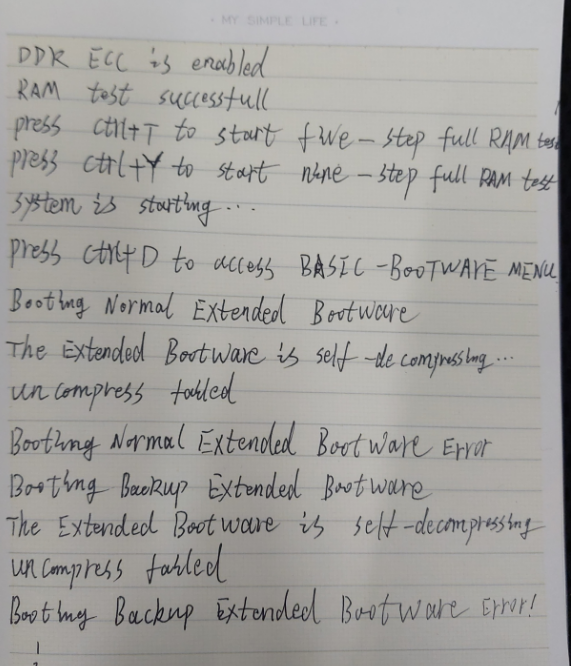 · MY SIMPLE LIFE ·
DDR ECC is enabled
RAM test successfull
press ctrl+T to start five-step full RAM test
press ctrl+Y to start nine-step full RAM test
system is starting...
press ctrl+D to access BASIC-BOOTWARE MENU
Booting Normal Extended Bootware
The Extended Bootware is self-decompressing...
uncompress failed
Booting Normal Extended BootWare Error
Booting Backup Extended Bootware
The Extended Bootware is self-decompressing
uncompress failed
Booting Backup Extended BootWare Error!